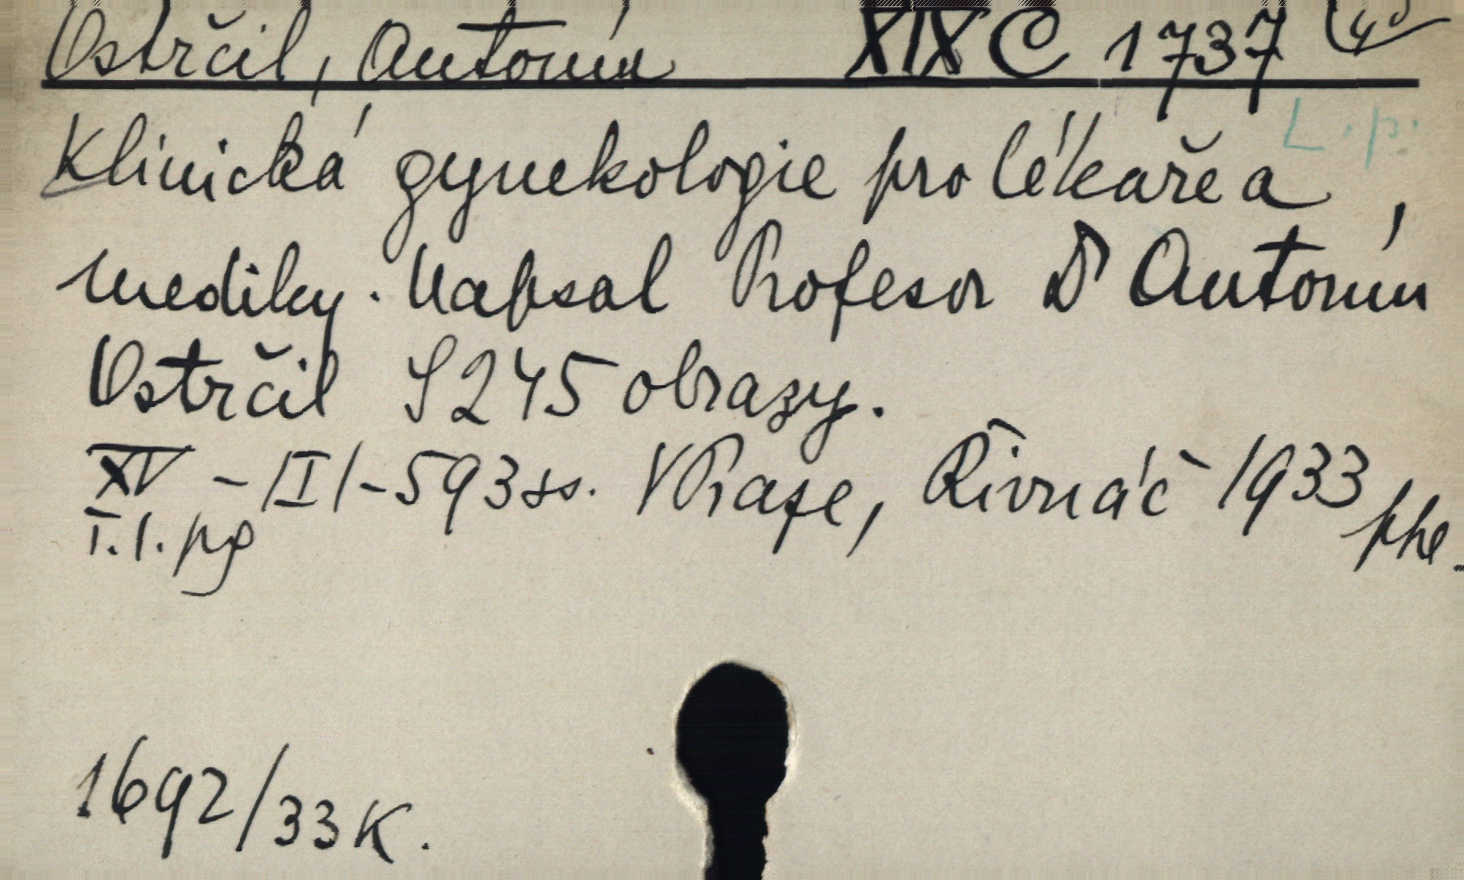 Ostrčil, Antonín XIX C 1737 4°
L. p.
Klinická gynekologie pro lékaře a
mediky. Napsal Profesor Dr Antonín
Ostrčil S 245 obrazy.
XV - /I/ - 593 ss. V Praze, Řivnáč 1933
I.l.pg
1692/33 K.